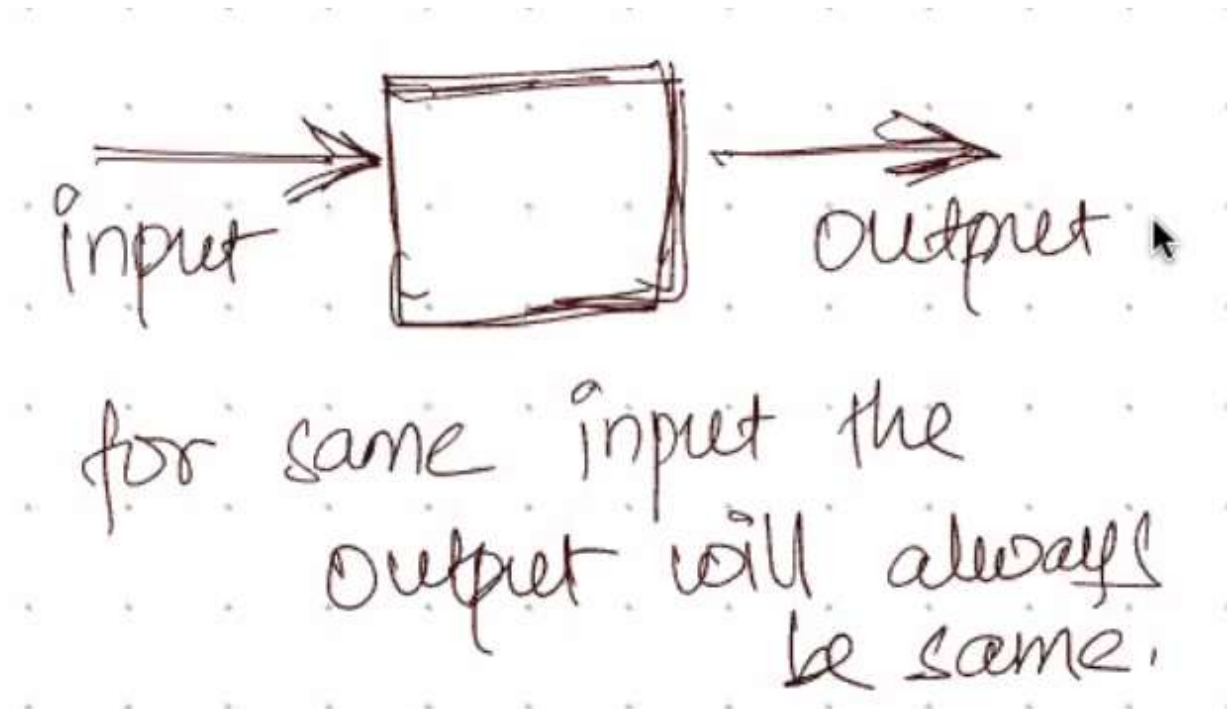 input
output
for same input the
output will always
be same.